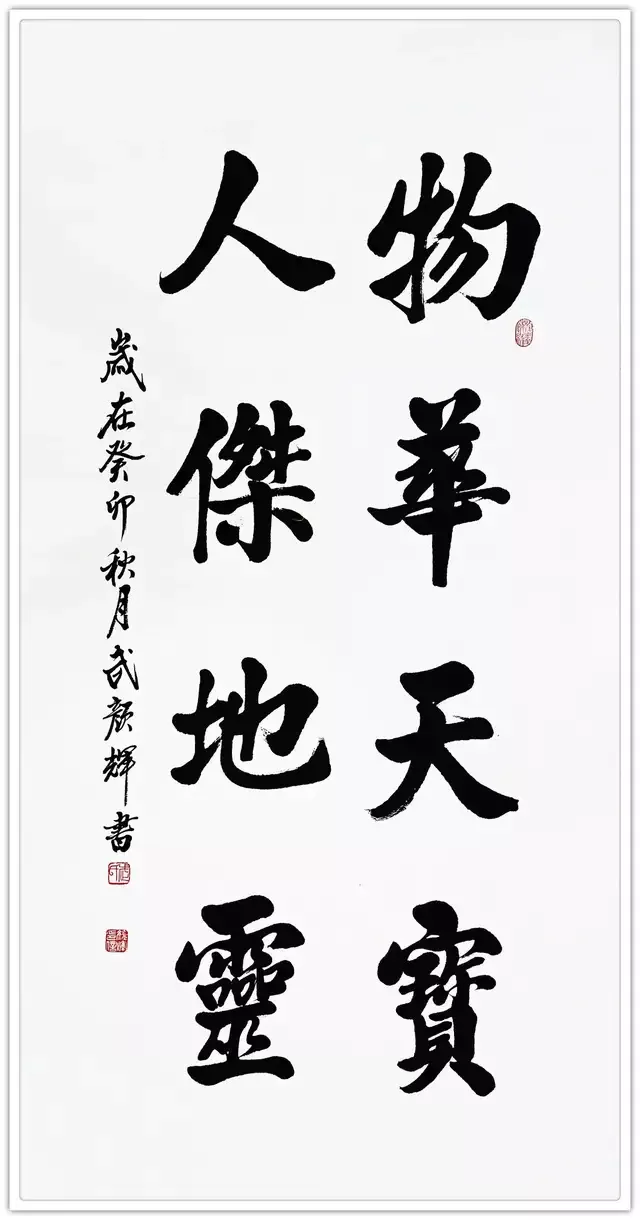 物華天寶
人傑地靈
歲在癸卯秋月武顏輝書